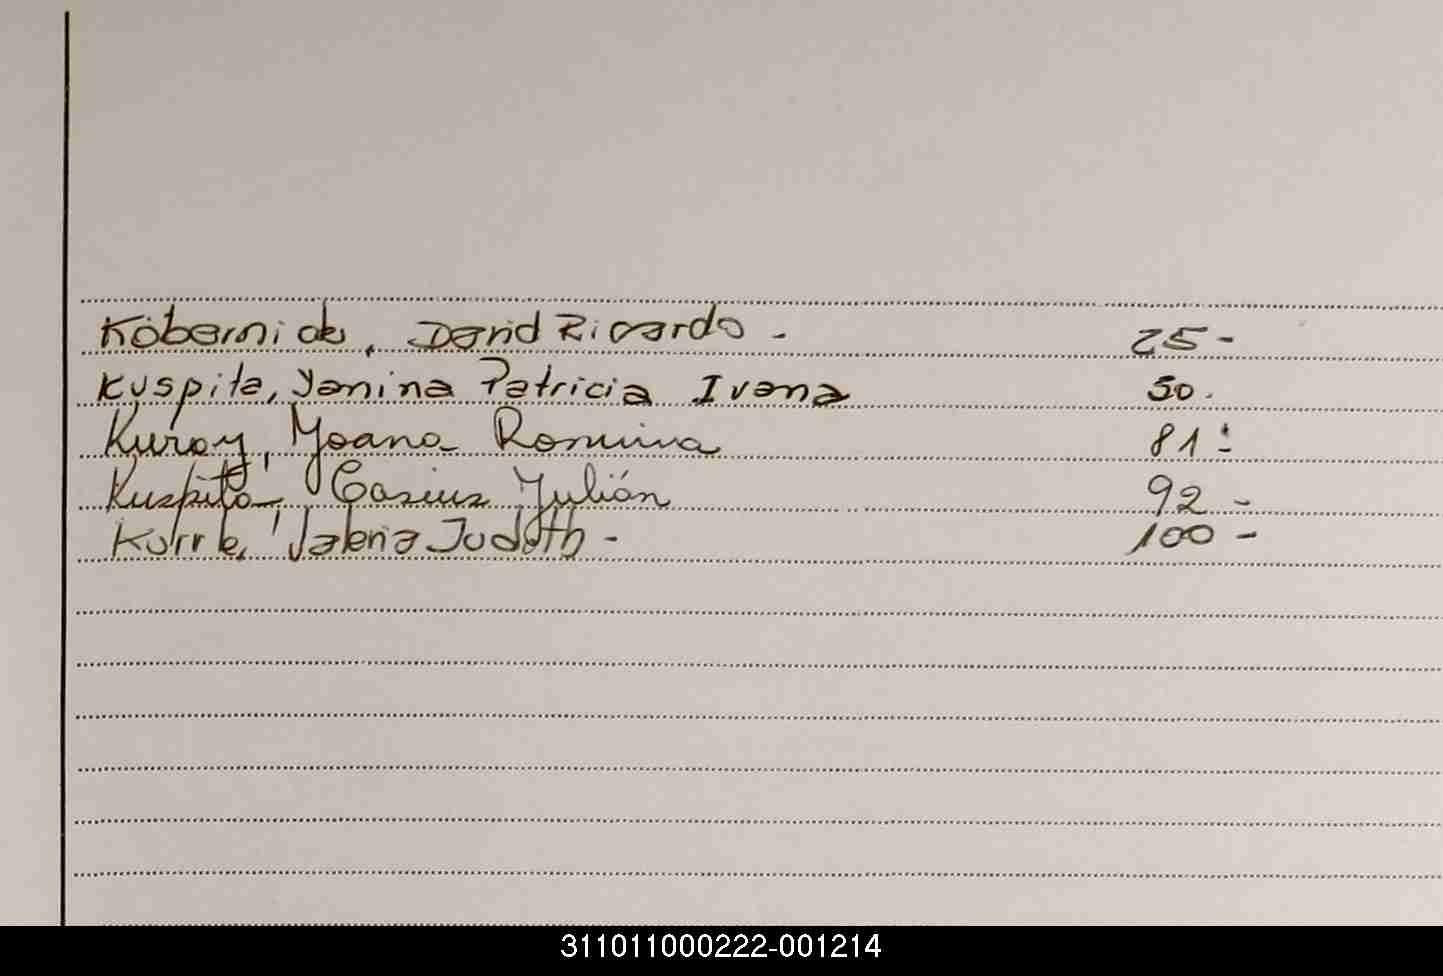 Kobernick, David Ricardo - 25-
Kuspita, Yanina Patricia Ivana 50.
Kuray, Yoana Romina 81-
Kuspita, Casius Julián 92-
Kurrle, Valeria Judith - 100-
311011000222-001214